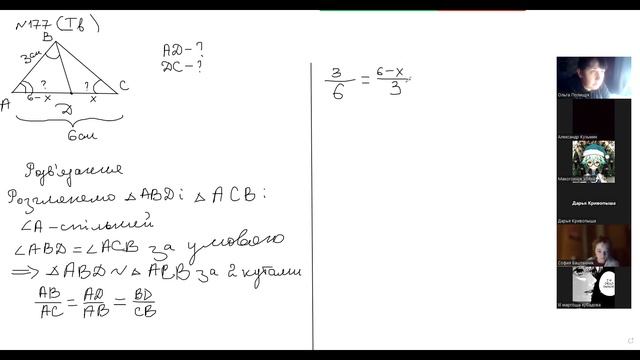 №177 (Ів)
B
3см
A
?
?
C
6-x
D
x
6см
AD-?
DC-?
Розв'язання
Розглянемо △ABD і △ACB:
∠A-спільний
∠ABD=∠ACB за умовою
⇒ △ABD ~ △ACB за 2 кутами
AB/AC = AD/AB = BD/CB
3/6 = 6-x/3
Ольга Поліщук
Александр Кузьмин
Дарья Кривопыша
Дарья Кривопыша
София Башлакова